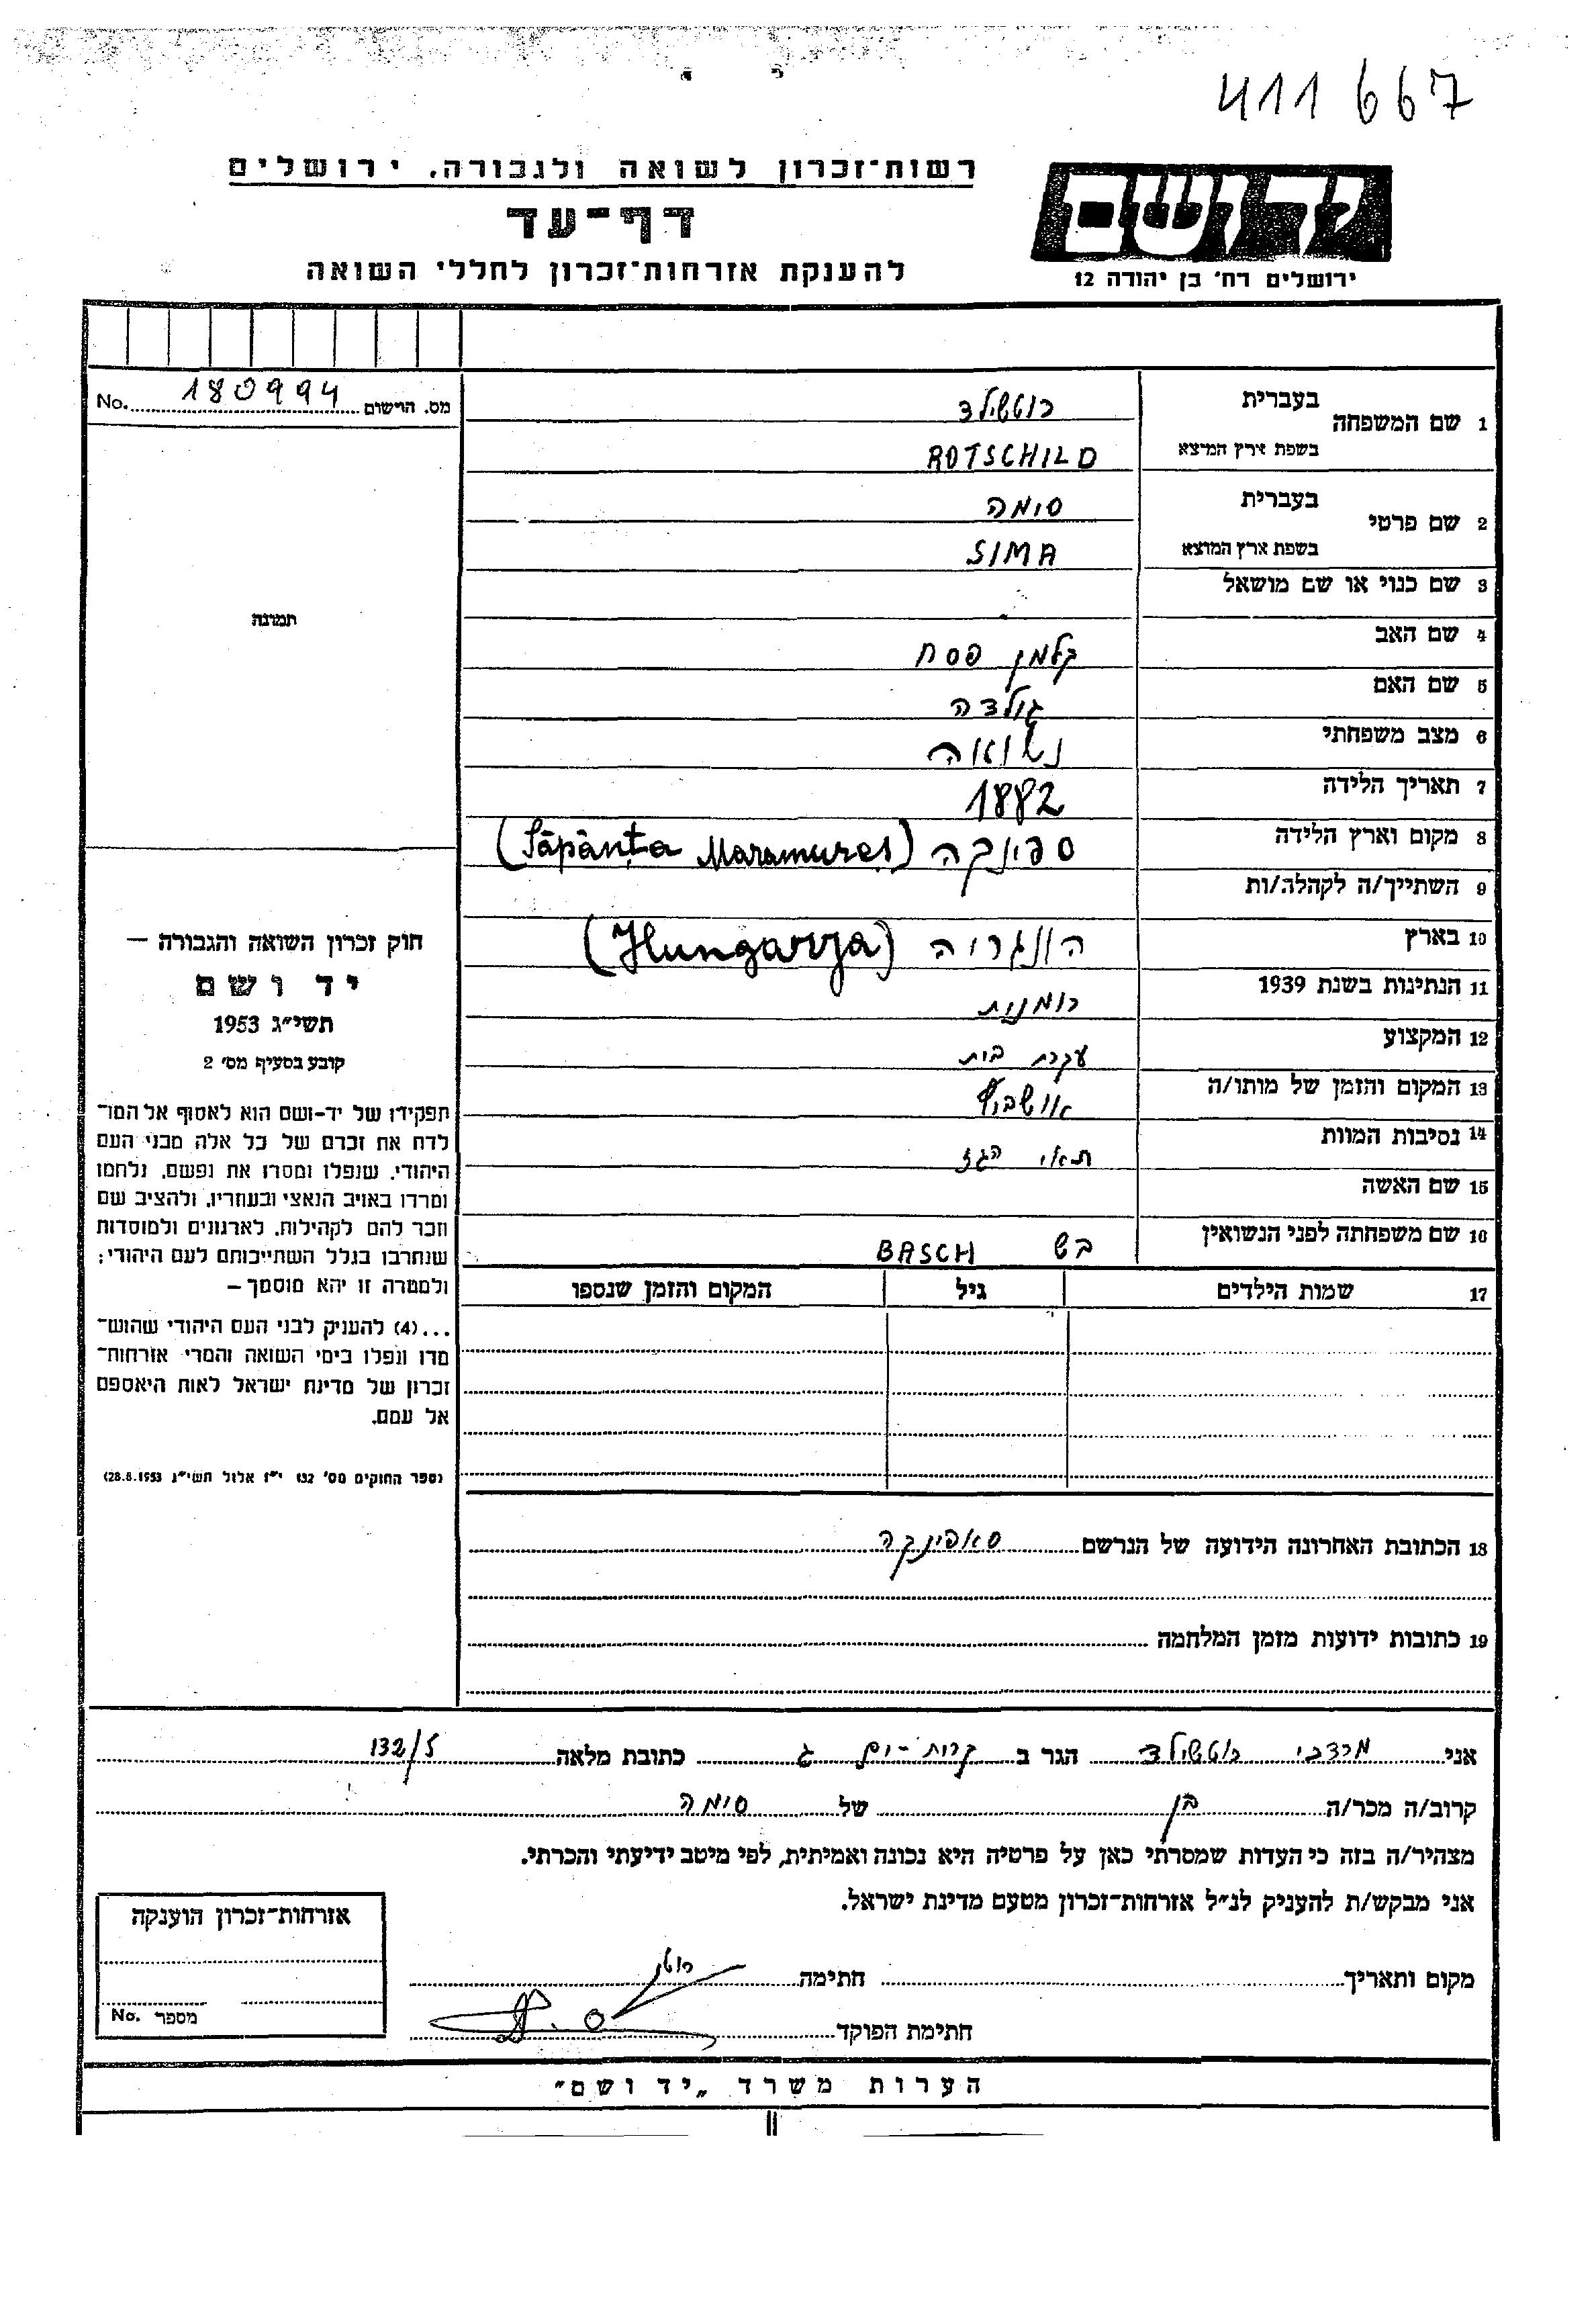 411 667
רשות־זכרון לשואה ולגבורה, ירושלים
דף־עד
להענקת אזרחות־זכרון לחללי השואה
יד ושם
ירושלים רח' בן יהודה 12
מס. הרישום 180994 No.
תמונה
1 שם המשפחה בעברית רוטשילד
בשפת ארץ המוצא ROTSCHILD
2 שם פרטי בעברית סימה
בשפת ארץ המוצא SIMA
3 שם כנוי או שם מושאל
4 שם האב קלמן פסח
5 שם האם גולדה
6 מצב משפחתי נשואה
7 תאריך הלידה 1882
8 מקום וארץ הלידה ספינקה (Săpânța Maramureș)
9 השתייך/ה לקהלה/ות
10 בארץ הונגריה (Hungarya)
11 הנתינות בשנת 1939 רומנית
12 המקצוע עקרת בית
13 המקום והזמן של מותו/ה אושביץ
14 נסיבות המוות תאי הגז
15 שם האשה
16 שם משפחתה לפני הנשואין בש BASCH
17 שמות הילדים גיל המקום והזמן שנספו
חוק זכרון השואה והגבורה —
יד ושם
תשי"ג 1953
קובע בסעיף מס' 2
תפקידו של יד-ושם הוא לאסוף אל המו־
לדת את זכרם של כל אלה מבני העם
היהודי, שנפלו ומסרו את נפשם, נלחמו
ומרדו באויב הנאצי ובעוזריו, ולהציב שם
וזכר להם לקהילות, לארגונים ולמוסדות
שנחרבו בגלל השתייכותם לעם היהודי;
ולמטרה זו יהא מוסמך —
...(4) להעניק לבני העם היהודי שהוש־
מדו ונפלו בימי השואה והמרי אזרחות־
זכרון של מדינת ישראל לאות היאספם
אל עמם.
(ספר החוקים מס' 132 י"ז אלול תשי"ג 28.8.1953)
18 הכתובת האחרונה הידועה של הנרשם סאפינקה
19 כתובות ידועות מזמן המלחמה
אני מרדכי רוטשילד הגר ב קרית-ים ג כתובת מלאה 132/5
קרוב/ה מכר/ה בן של סימה
מצהיר/ה בזה כי העדות שמסרתי כאן על פרטיה היא נכונה ואמיתית, לפי מיטב ידיעתי והכרתי.
אני מבקש/ת להעניק לנ"ל אזרחות־זכרון מטעם מדינת ישראל.
מקום ותאריך חתימה
חתימת הפוקד
אזרחות־זכרון הוענקה
מספר No.
הערות משרד „יד ושם"